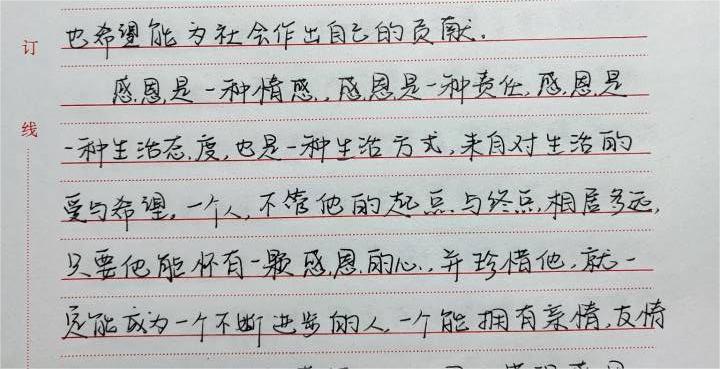 订
线
也希望能为社会作出自己的贡献。
感恩是一种情感,感恩是一种责任,感恩是
一种生活态度,也是一种生活方式,来自对生活的
爱与希望。一个人,不管他的起点与终点,相居多远,
只要他能怀有一颗感恩的心,并珍惜他,就一
定能成为一个不断进步的人,一个能拥有亲情,友情